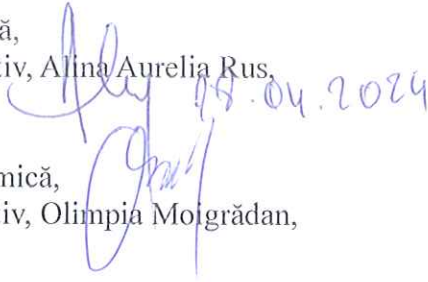 ă,
tiv, Alina Aurelia Rus,
28.04.2024
mică,
tiv, Olimpia Moigrădan,